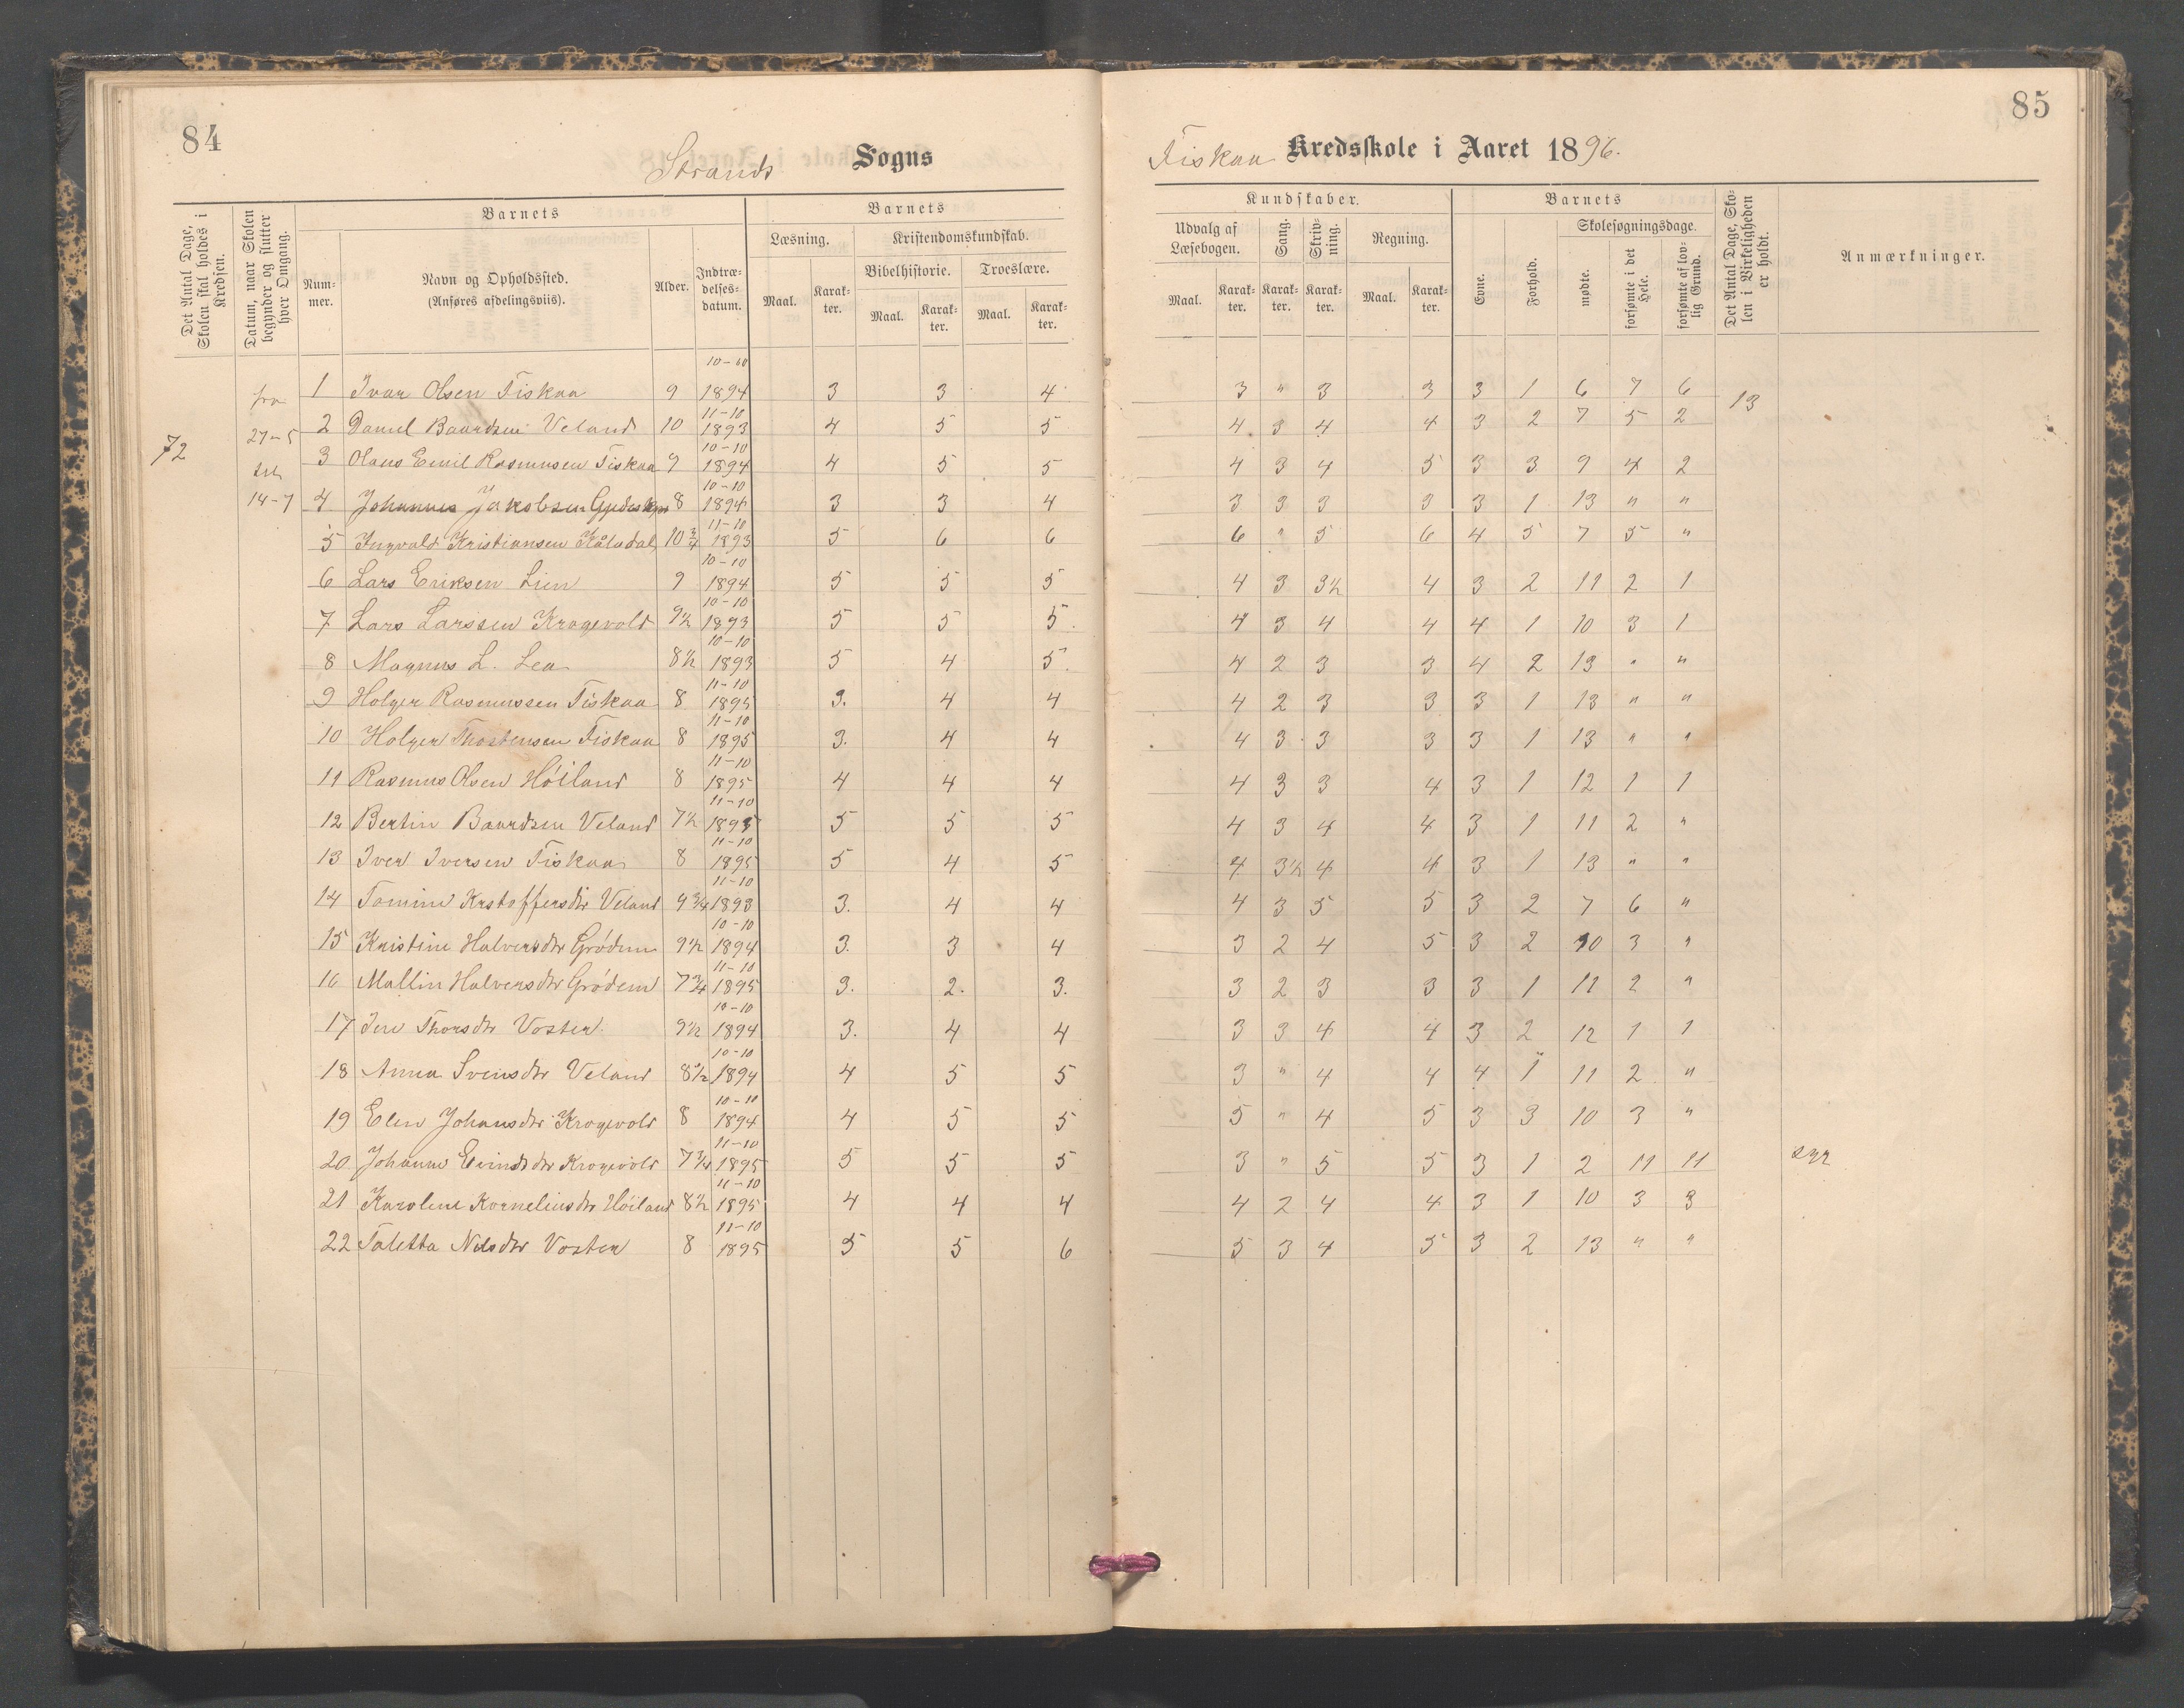 84
Strands Sogns
Det Antal Dage, Skolen skal holdes i Kredsen.
Datum, naar Skolen begynder og slutter hver Omgang.
Barnets
Num-mer.
Navn og Opholdssted. (Anføres afdelingsviis).
Alder.
Indtræ-delses-datum.
Barnets
Læsning.
Kristendomskundskab.
Bibelhistorie.
Troeslære.
Maal.
Karak-ter.
Maal.
Karak-ter.
Maal.
Karak-ter.
85
Fiskaa Kredsskole i Aaret 1896.
Kundskaber.
Udvalg af Læsebogen.
Sang.
Skriv-ning.
Regning.
Maal.
Karak-ter.
Karak-ter.
Karak-ter.
Maal.
Karak-ter.
Barnets
Evne.
Forhold.
Skolesøgningsdage.
mødte.
forsømte i det Hele.
forsømte af lov-lig Grund.
Det Antal Dage, Sko-len i Virkeligheden er holdt.
Anmærkninger.
72
fra
27-5
til
14-7
13
1 Ivar Olsen Fiskaa 9 10-10 1894 3 3 4 3 " 3 3 3 1 6 7 6
2 Daniel Baardsen Veland 10 11-10 1893 4 5 5 4 3 4 4 3 2 7 5 2
3 Olaus Emil Rasmusen Fiskaa 9 10-10 1894 4 5 5 4 3 4 5 3 3 9 4 2
4 Johannes Jakobsen 8 10-10 1894 3 3 4 3 3 3 3 3 1 13 " "
5 Ingvald Kristiansen Kåladal 10 3/4 11-10 1893 5 6 6 6 " 5 6 4 5 7 5 "
6 Lars Eriksen Lien 9 10-10 1894 5 5 5 4 3 3½ 4 3 2 11 2 1
7 Lars Larssen Krogevold 9½ 10-10 1893 5 5 5. 4 3 4 4 4 1 10 3 1
8 Magnus L. Lea 8½ 10-10 1893 5 4 5. 4 2 3 3 4 2 13 " "
9 Holger Rasmussen Fiskaa 8 11-10 1895 3. 4 4 4 2 3 3 3 1 13 " "
10 Holger Thostensen Fiskaa 8 11-10 1895 3. 4 4 4 3 3 3 3 1 13 " "
11 Rasmus Olsen Höiland 8 11-10 1895 4 4 4 4 3 3 4 3 1 12 1 1
12 Bertin Baardsen Veland 7½ 11-10 1895 5 5 5 4 3 4 4 3 1 11 2 "
13 Iver Iversen Fiskaa 8 11-10 1895 5 4 5 4 3½ 4 4 3 1 13 " "
14 Tomine Krstoffersdtr Veland 9 3/4 11-10 1893 3. 4 4 4 3 5 5 3 2 7 6 "
15 Kristine Halversdtr Grödem 9½ 10-10 1894 3. 3 4 3 2 4 5 3 2 10 3 "
16 Mallin Halversdtr Grödem 7 3/4 11-10 1895 3. 2. 3. 3 2 3 3 3 1 11 2 "
17 Thorsdtr Voster 9½ 10-10 1894 3. 4 4 3 3 4 4 3 2 12 1 1
18 Anna Svensdtr Veland 8½ 10-10 1894 4 5 5 3 " 4 4 4 1 11 2 "
19 Elen Johansdtr Krogevold 8 10-10 1894 4 5 5 5 " 4 5 3 3 10 3 "
20 Johanne Eivindsdtr Krogevold 7 3/4 11-10 1895 5 5 5 3 " 5 5 3 1 2 11 11 syg
21 Karolene Korneliusdtr Höiland 8½ 11-10 1895 4 4 4 4 2 4 4 3 1 10 3 3
22 Taletta Nilsdtr Voster 8 11-10 1895 5 5 6 5 3 4 5 3 2 13 " "